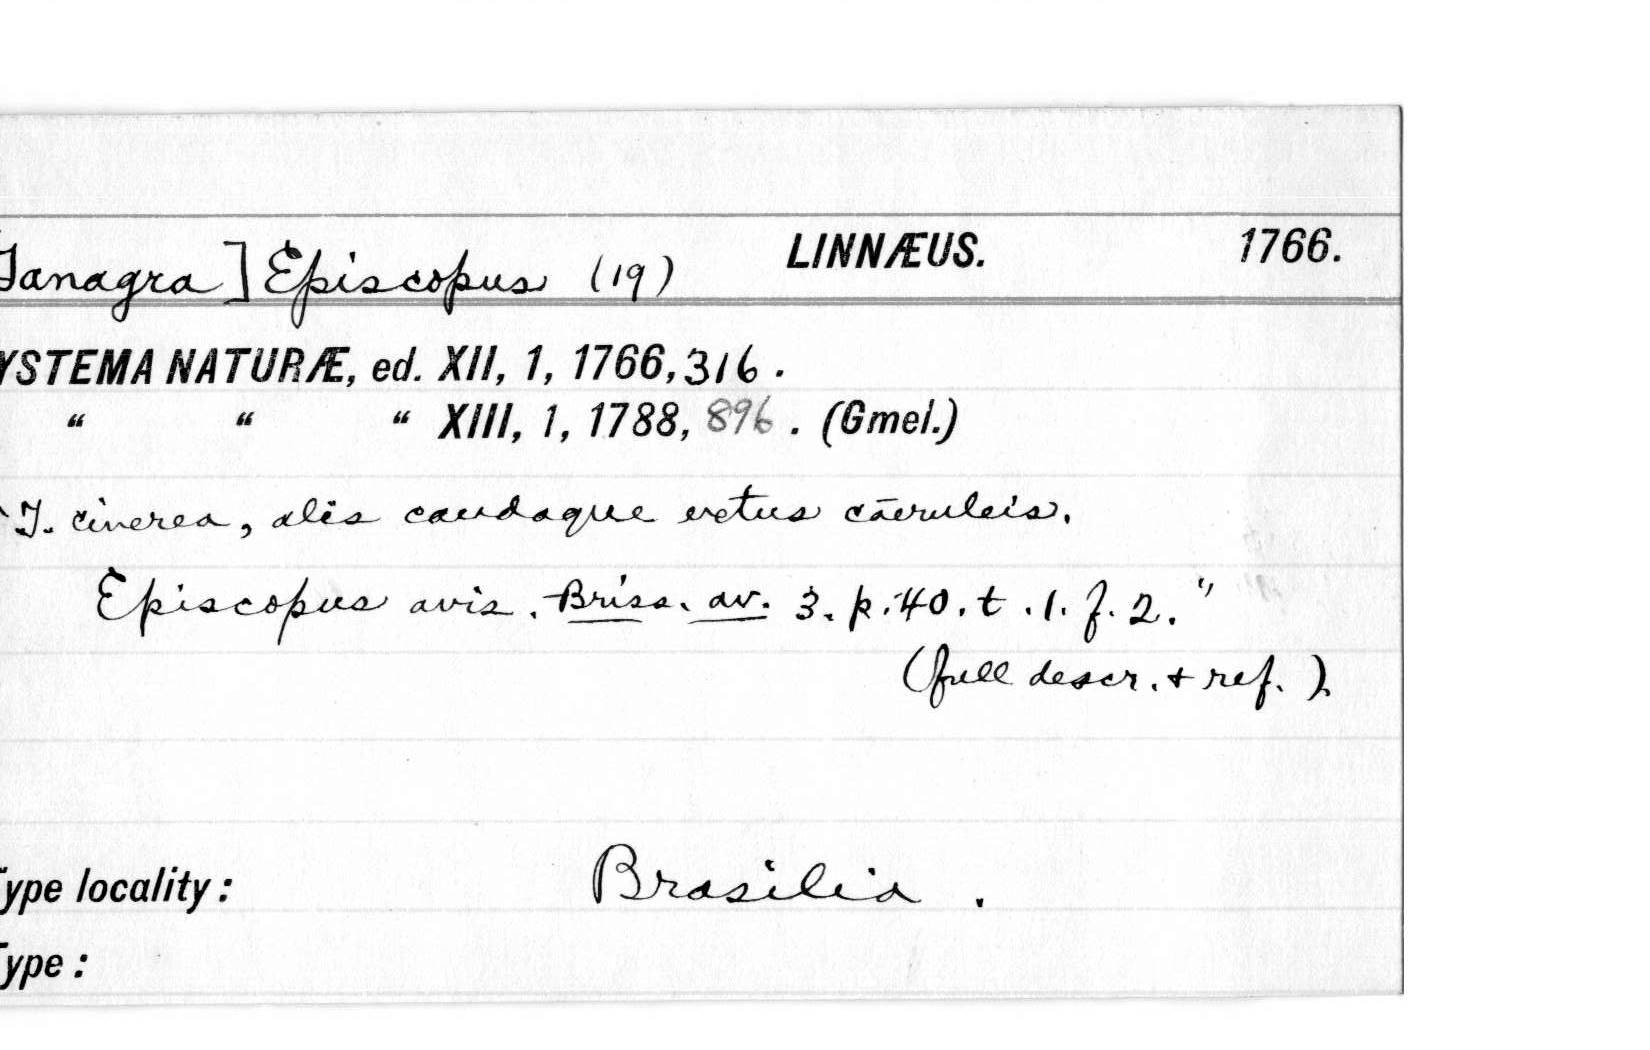 Tanagra] Episcopus (19) LINNÆUS. 1766.
YSTEMA NATURÆ, ed. XII, 1, 1766, 316.
" " " XIII, 1, 1788, 896. (Gmel.)
"T. cinerea, alis caudaque extus cæruleis.
Episcopus avis. Briss. av. 3. p. 40. t. 1. f. 2."
(full descr. + ref.).
Type locality: Brasilia.
Type: